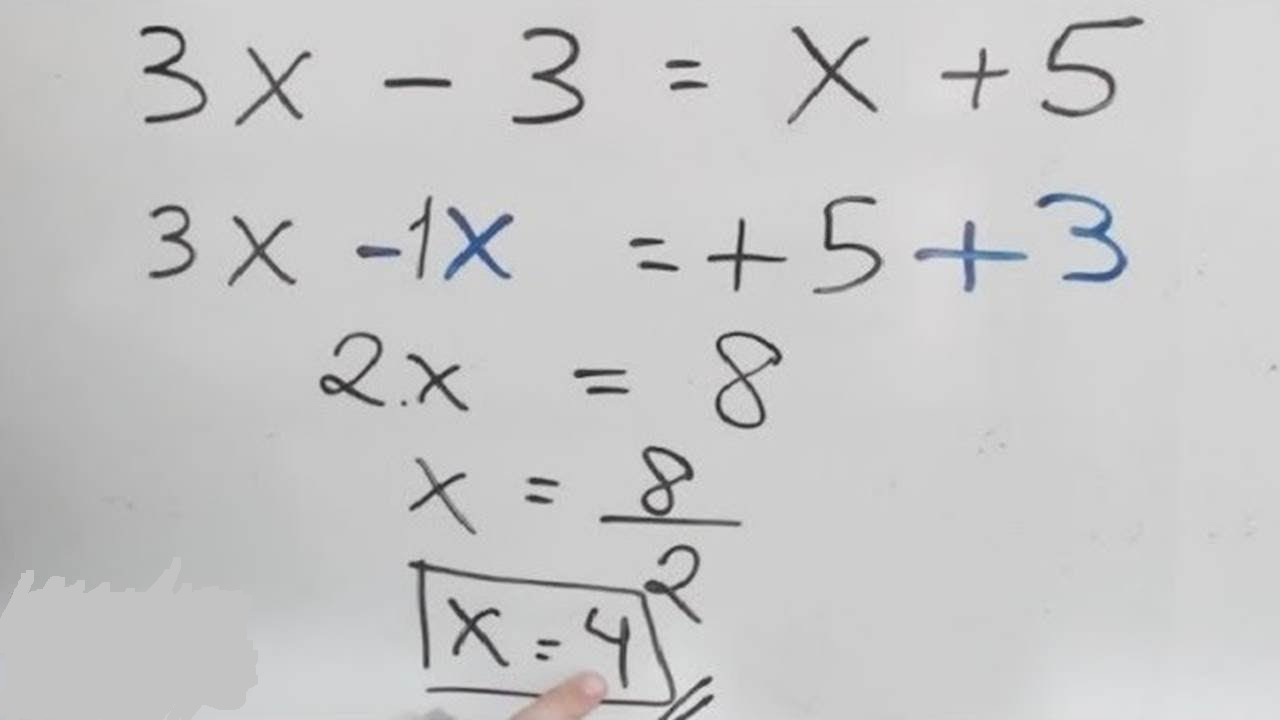 3x - 3 = x + 5
3x - 1x = + 5 + 3
2.x = 8
x = 8/2
x = 4